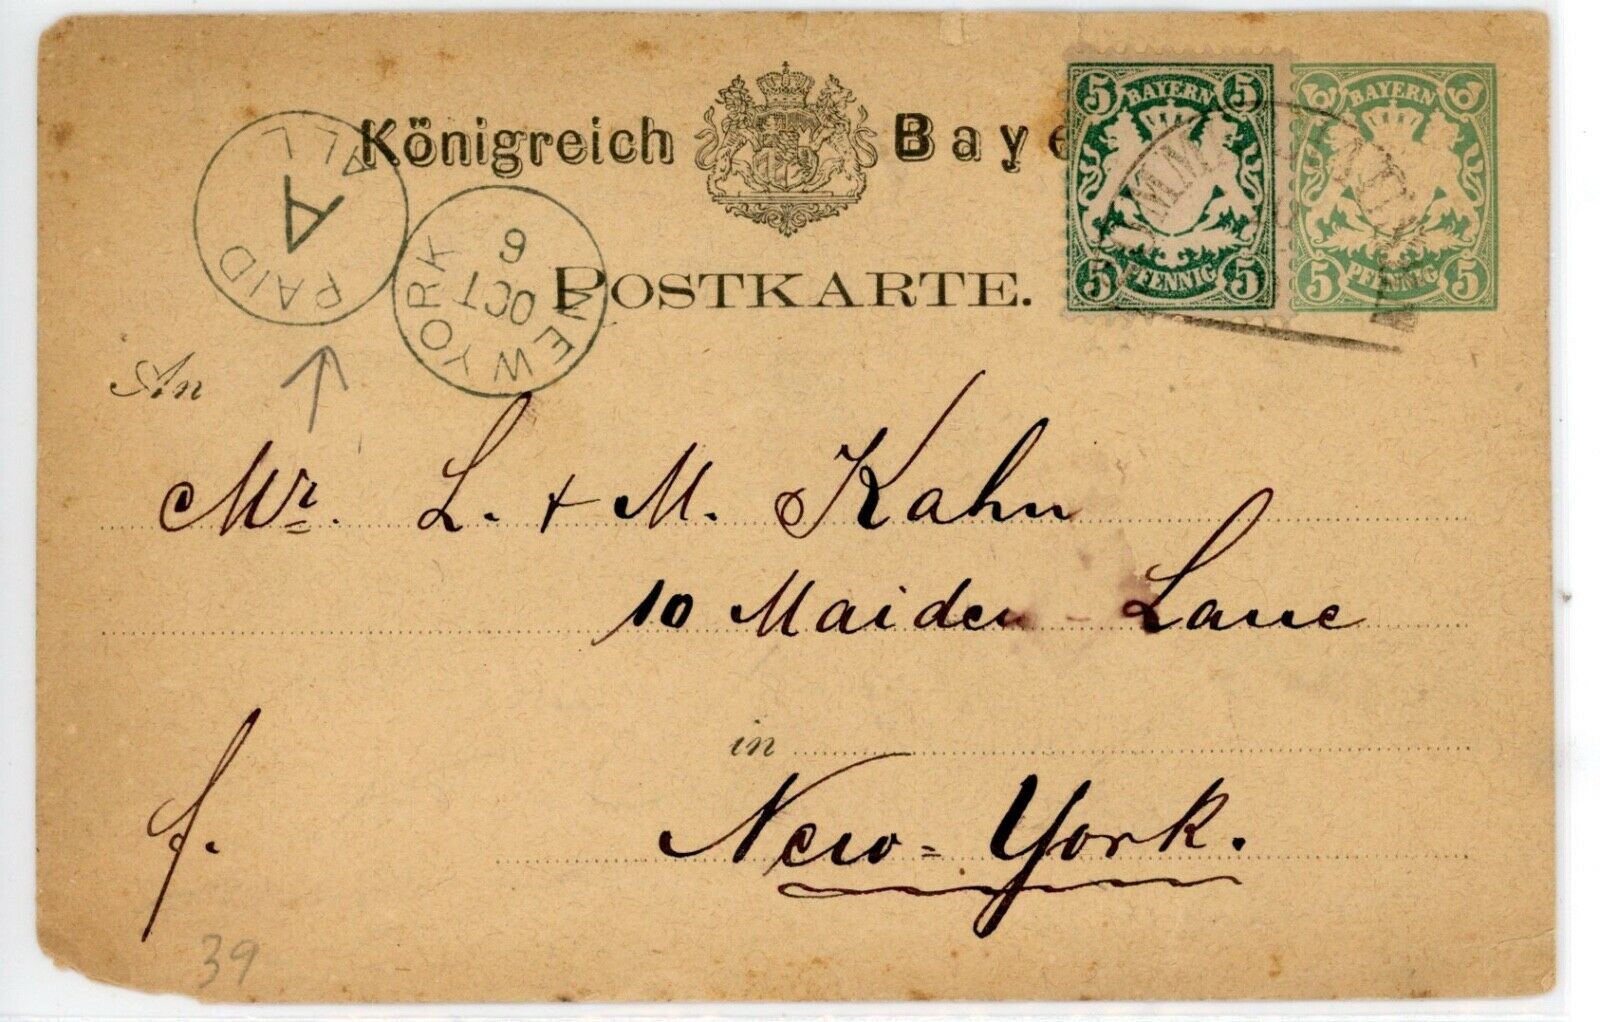 Königreich Baye
POSTKARTE.
5 BAYERN 5
5 PFENNIG 5
BAYERN
5 PFENNIG 5
PAID ALL
A
NEW YORK
OCT
6
An
Mr. L. + M. Kahn
10 Maiden-Lane
in
New-York.
f.
39